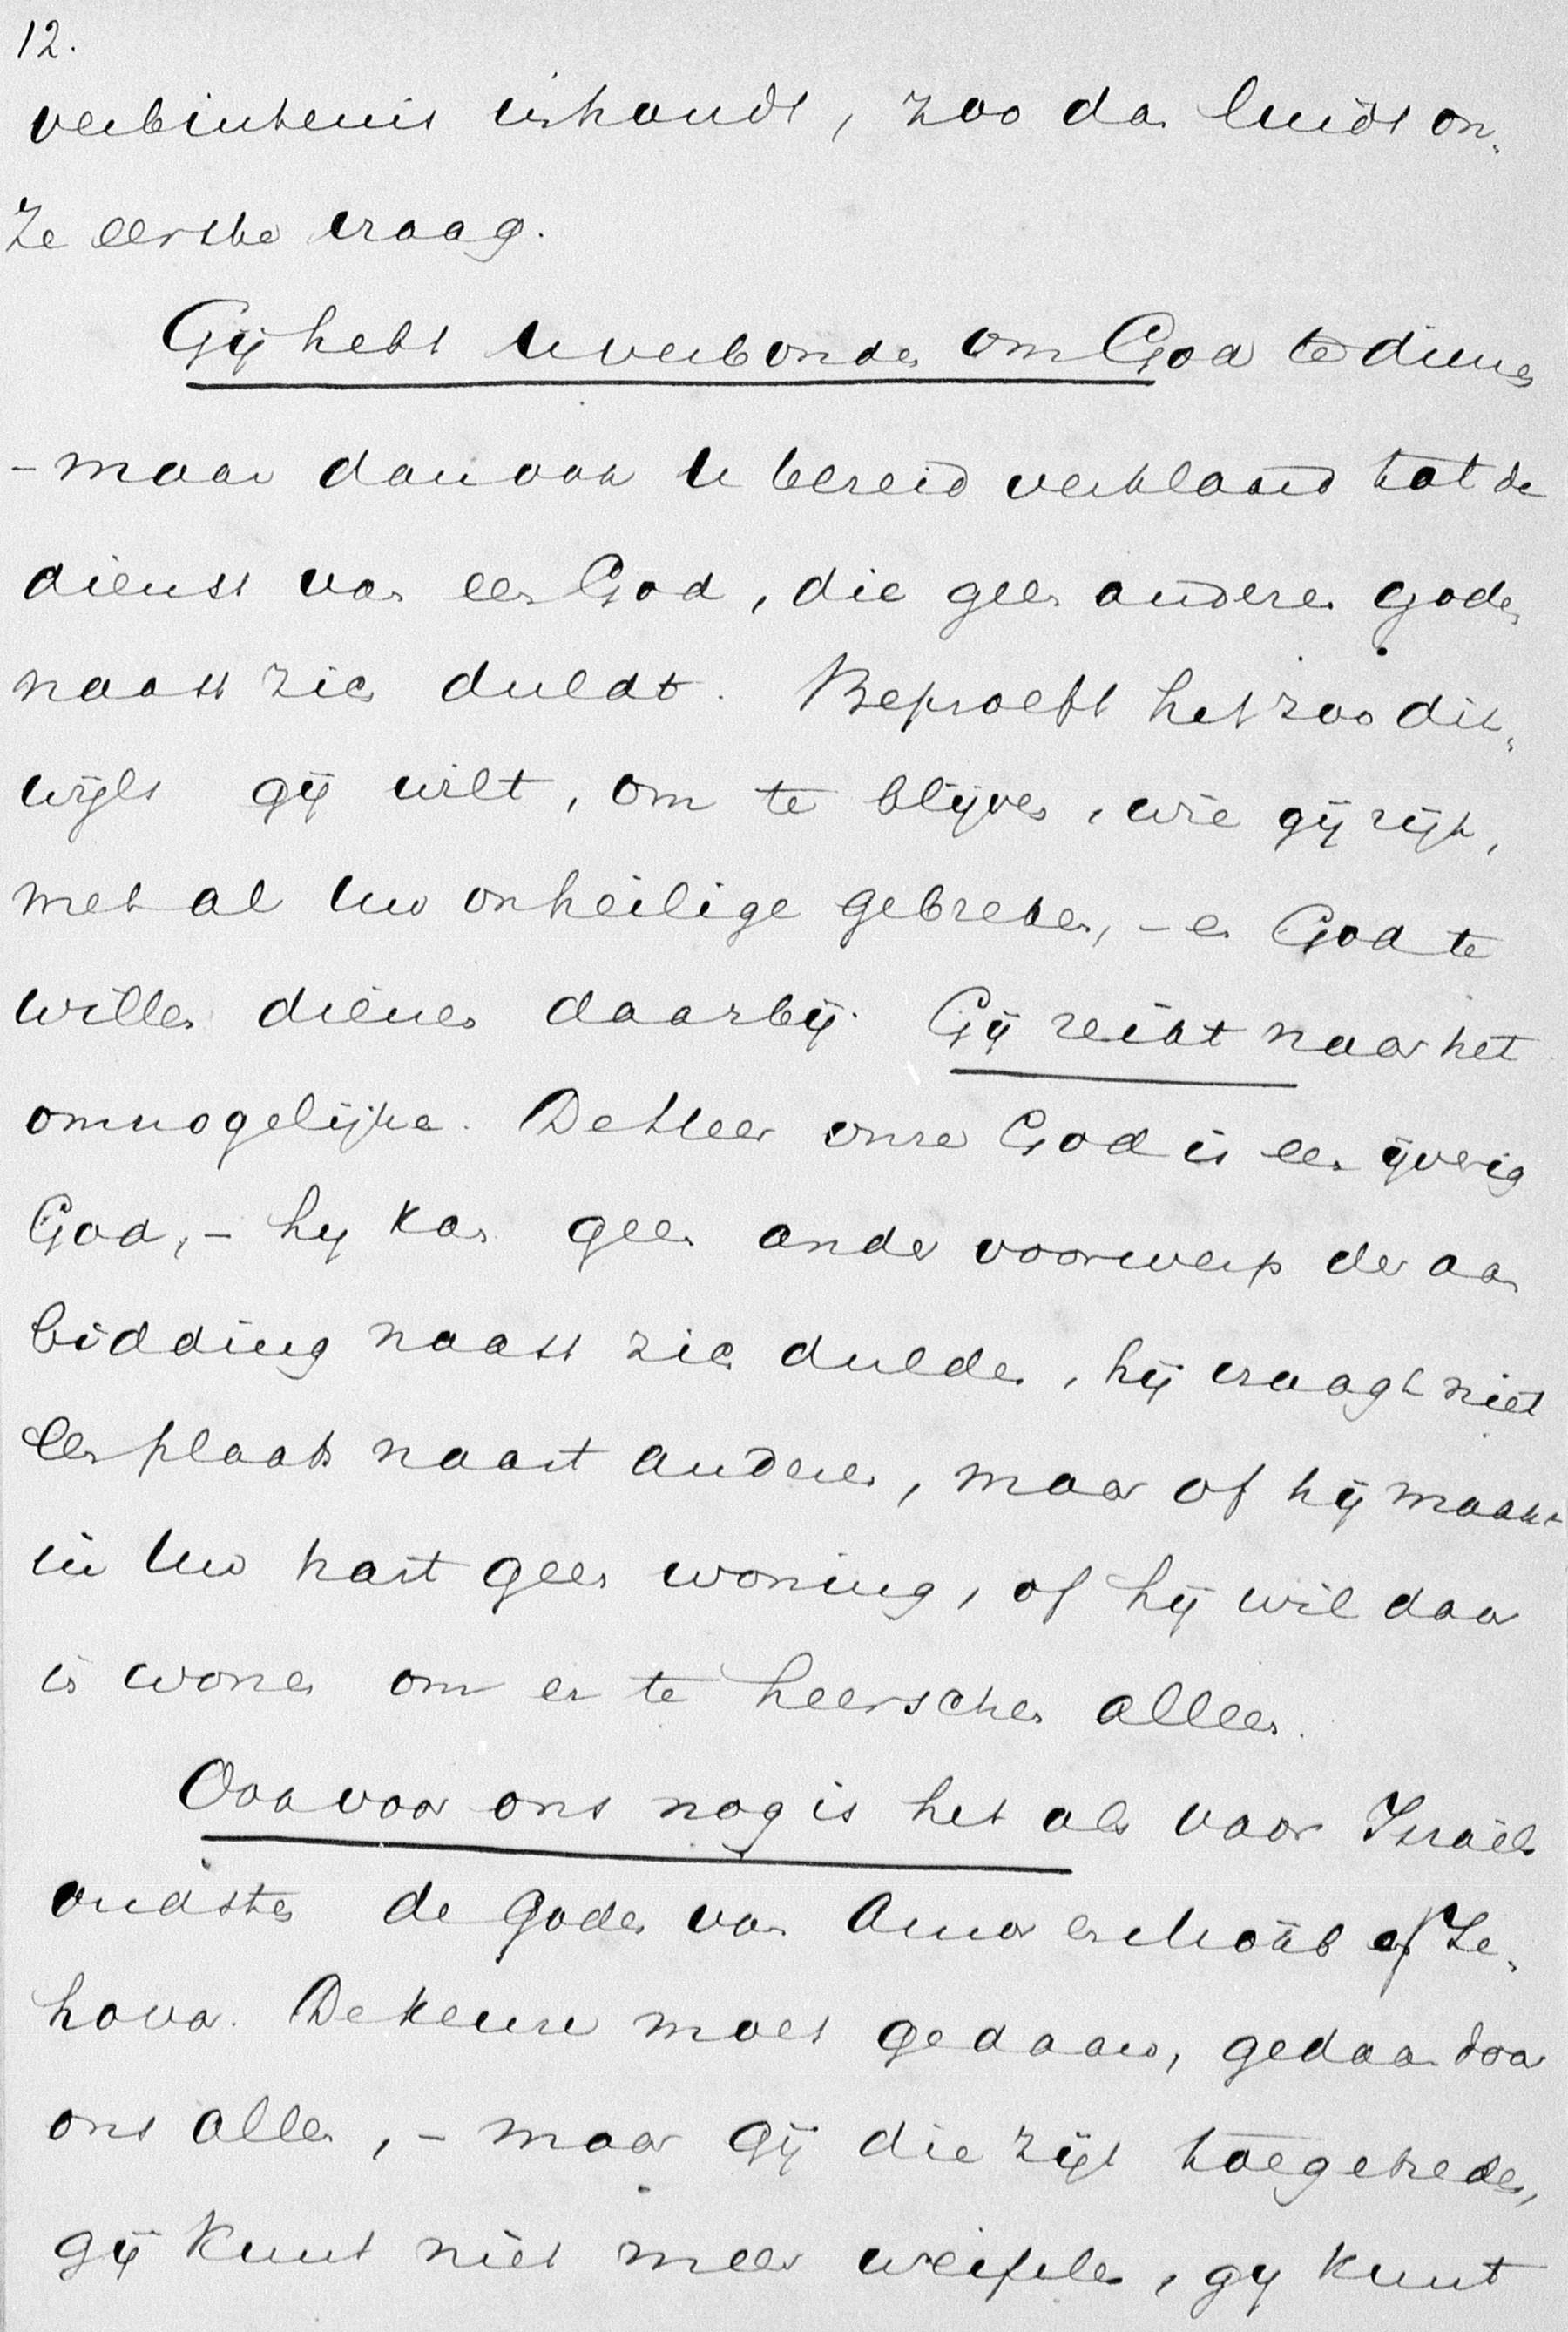 12.
verbintenis inhoudt, zoo dan luidt on„
ze eerste vraag.
Gij hebt U verbonden om God te dienen
- maar dan ook U bereid verklaard tot de
dienst van een God, die geen andere goden
naast zich duldt. Beproeft het zoo dik„
wijls gij wilt, om te blijven, wie gij zijt,
met al Uw onheilige gebreken, - en God te
willen dienen daarbij. Gij reikt naar het
onmogelijke. De Heer onze God is een ijverig
God, - hij kan geen ander voorwerp der aan
bidding naast zich dulden, hij vraagt niet
een plaats naast anderen, maar of hij maakt
in Uw hart geen woning, of hij wil daar
in wonen om er te heerschen alleen.
Ook voor ons nog is het als voor Israëls
oudsten de goden van Amor en Moäb of Je„
hova. De keuze moet gedaan, gedaan door
ons allen, - maar gij die zijt toegetreden,
gij kunt niet meer weifelen, gij kunt